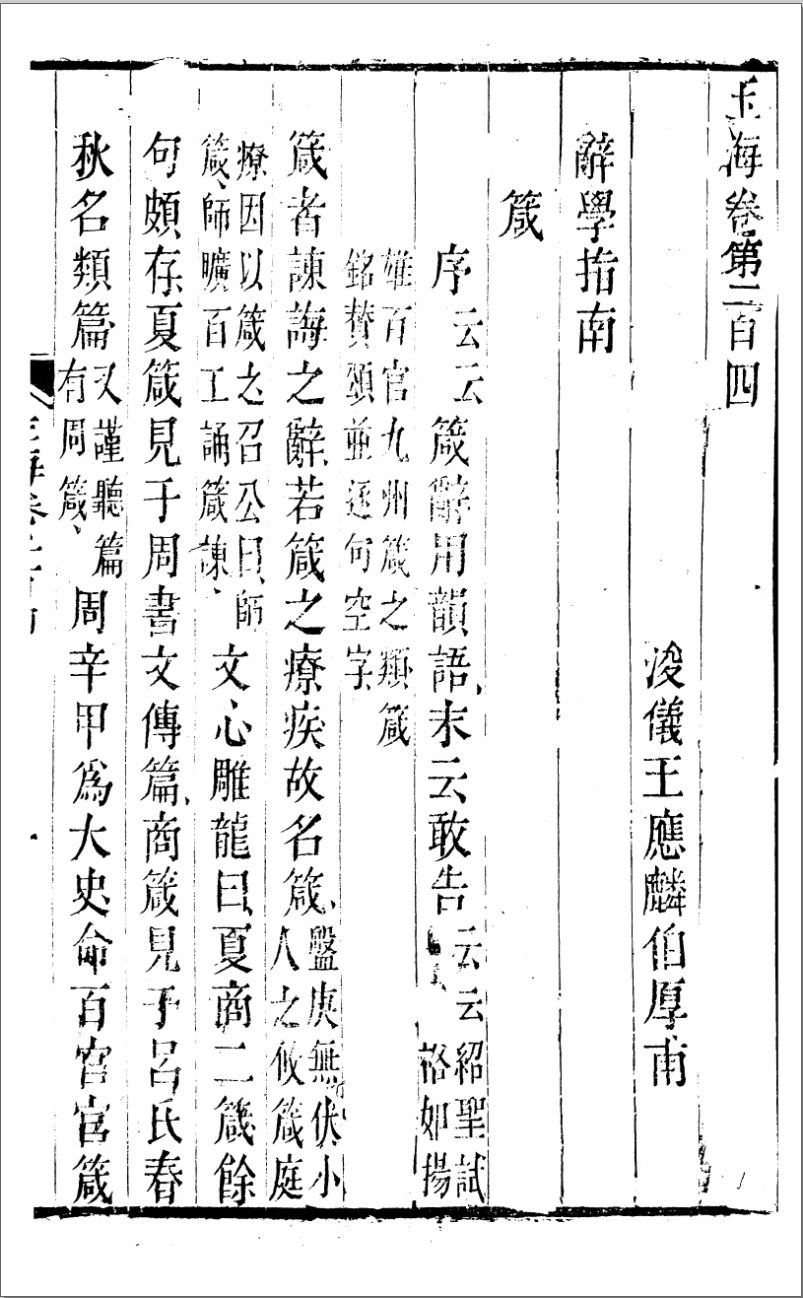 玉海卷第二百四
浚儀王應麟伯厚甫
辭學指南
箴
序云云箴辭用韻語末云敢告云云紹聖試
格如揚
雄百官九州箴之類箴
銘贊頌並逐句空字
箴者諫誨之辭若箴之療疾故名箴盤庚無伏小
人之攸箴庭
療因以箴之召公曰師
箴師曠百工誦箴諫
文心雕龍曰夏商二箴餘
句頗存夏箴見于周書文傳篇商箴見于呂氏春
秋名類篇又謹聽篇
有周箴
周辛甲爲大史命百官官箴